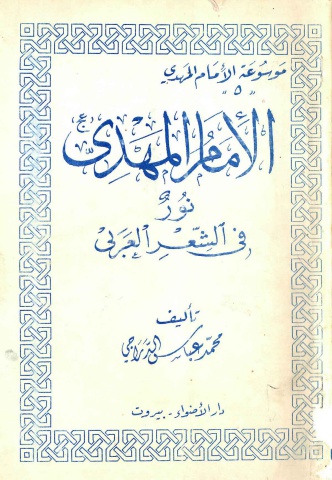 موسوعة الإمام المهدي
"٥"
الإمام المهدي (عج)
نور
في الشعر العربي
تأليف
محمد عباس الدراجي
دار الأضواء - بيروت